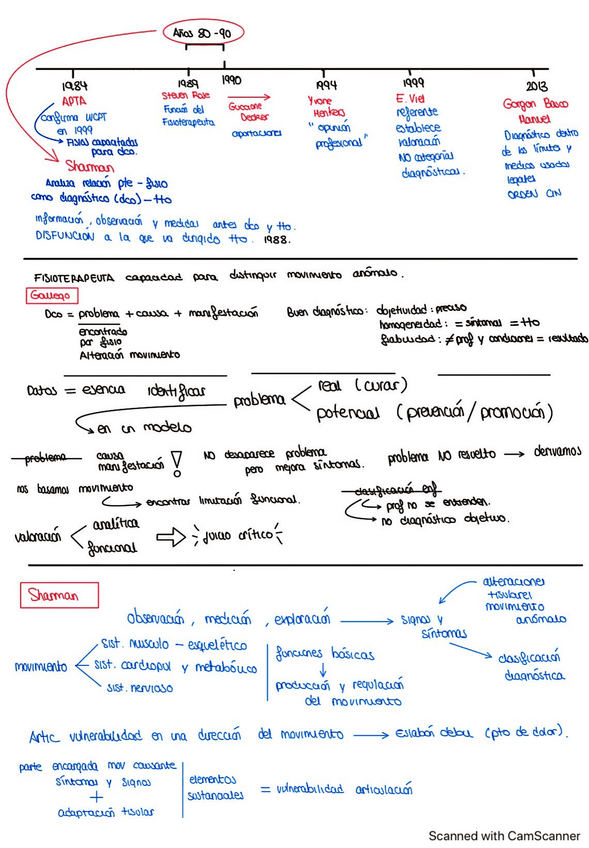 Años 80-90
1984
1989
1990
1994
1999
2013
APTA
confirma WCPT
en 1999
FISIOS capacitados
para dco.
Sharman
Analiza relación pte - fisio
como diagnóstico (dco) - tto
Steven Rose
Función del
Fisioterapeuta
Guccione
Decker
aportaciones
Yvone
"opinión
profesional"
E. Viel
referente
establece
valoración
NO categorías
diagnósticas.
Gorgon Basco
Manuel
Diagnóstico dentro
de los límites y
medios usados
legales
ORDEN CIN
información, observación y medidas antes dco y tto.
DISFUNCIÓN a la que va dirigido tto. 1988.
FISIOTERAPEUTA capacidad para distinguir movimiento anómalo.
Gallego
Dco = problema + causa + manifestación
encontrado
por fisio
Alteración movimiento
Buen diagnóstico: objetividad: preciso
homogeneidad: = síntomas = tto
fiabilidad: ≠ prof y condiciones = resultado
Datos = esencia identificar
en un modelo
problema
real (curar)
potencial (prevención/promoción)
problema
causa
manifestación !
NO desaparece problema
pero mejora síntomas.
problema NO resuelto → derivamos
nos basamos movimiento
encontrar limitación funcional.
clasificación enf
prof no se entienden.
no diagnóstico objetivo.
valoración
analítica
funcional
juicio crítico
Sharman
observación, medición, exploración → signos y
síntomas
alteraciones
tisulares
movimiento
anómalo
clasificación
diagnóstica
movimiento
sist. músculo - esquelético
sist. cardiopul y metabólico
sist. nervioso
funciones básicas
producción y regulación
del movimiento
Artic vulnerabilidad en una dirección del movimiento → Eslabón débil (pto de dolor).
parte encargada mov causante
síntomas y signos
+
adaptación tisular
elementos
sustanciales
= vulnerabilidad articulación
Scanned with CamScanner